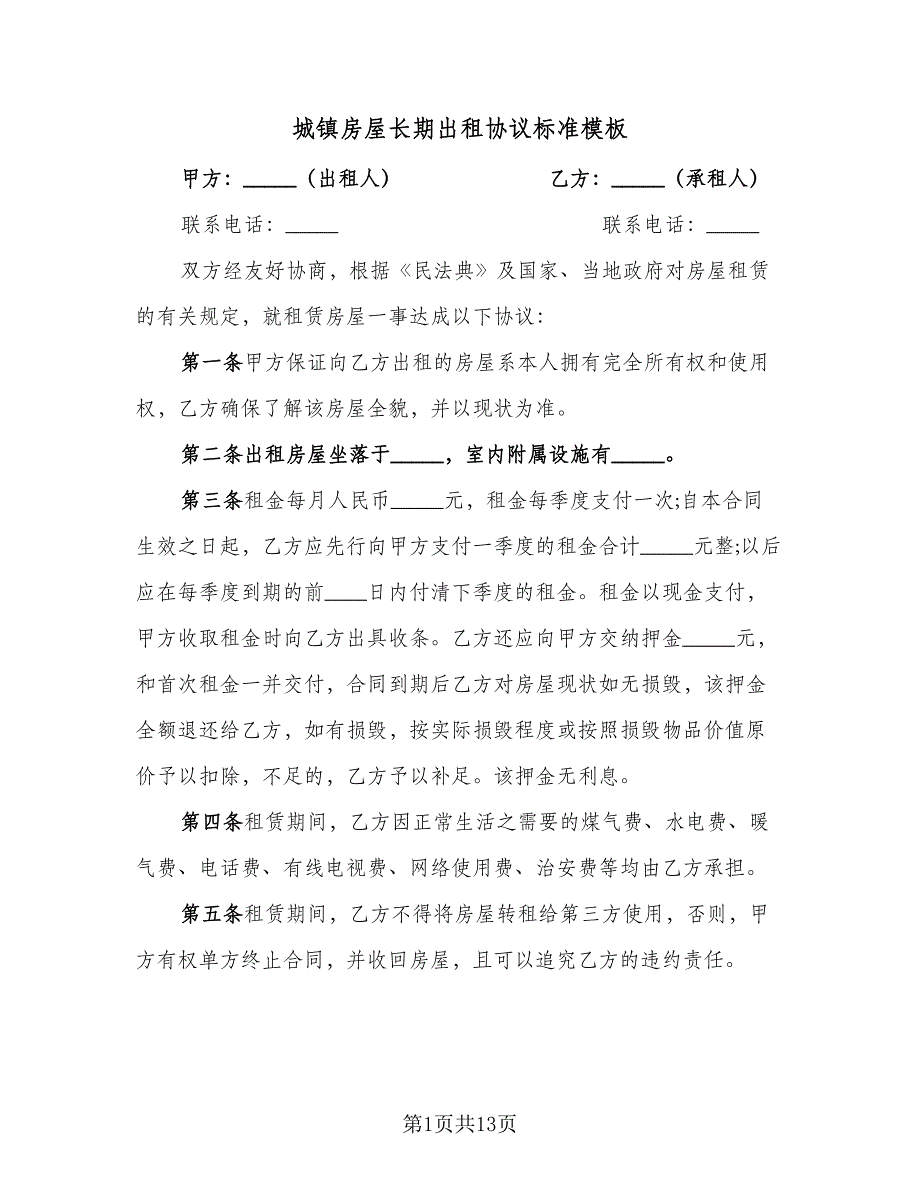 城镇房屋长期出租协议标准模板
甲方：_____（出租人） 乙方：_____（承租人）
联系电话：_____ 联系电话：_____
双方经友好协商，根据《民法典》及国家、当地政府对房屋租赁
的有关规定，就租赁房屋一事达成以下协议：
第一条甲方保证向乙方出租的房屋系本人拥有完全所有权和使用
权，乙方确保了解该房屋全貌，并以现状为准。
第二条出租房屋坐落于_____，室内附属设施有_____。
第三条租金每月人民币_____元，租金每季度支付一次;自本合同
生效之日起，乙方应先行向甲方支付一季度的租金合计_____元整;以后
应在每季度到期的前____日内付清下季度的租金。租金以现金支付，
甲方收取租金时向乙方出具收条。乙方还应向甲方交纳押金_____元，
和首次租金一并交付，合同到期后乙方对房屋现状如无损毁，该押金
全额退还给乙方，如有损毁，按实际损毁程度或按照损毁物品价值原
价予以扣除，不足的，乙方予以补足。该押金无利息。
第四条租赁期间，乙方因正常生活之需要的煤气费、水电费、暖
气费、电话费、有线电视费、网络使用费、治安费等均由乙方承担。
第五条租赁期间，乙方不得将房屋转租给第三方使用，否则，甲
方有权单方终止合同，并收回房屋，且可以追究乙方的违约责任。
第1页共13页